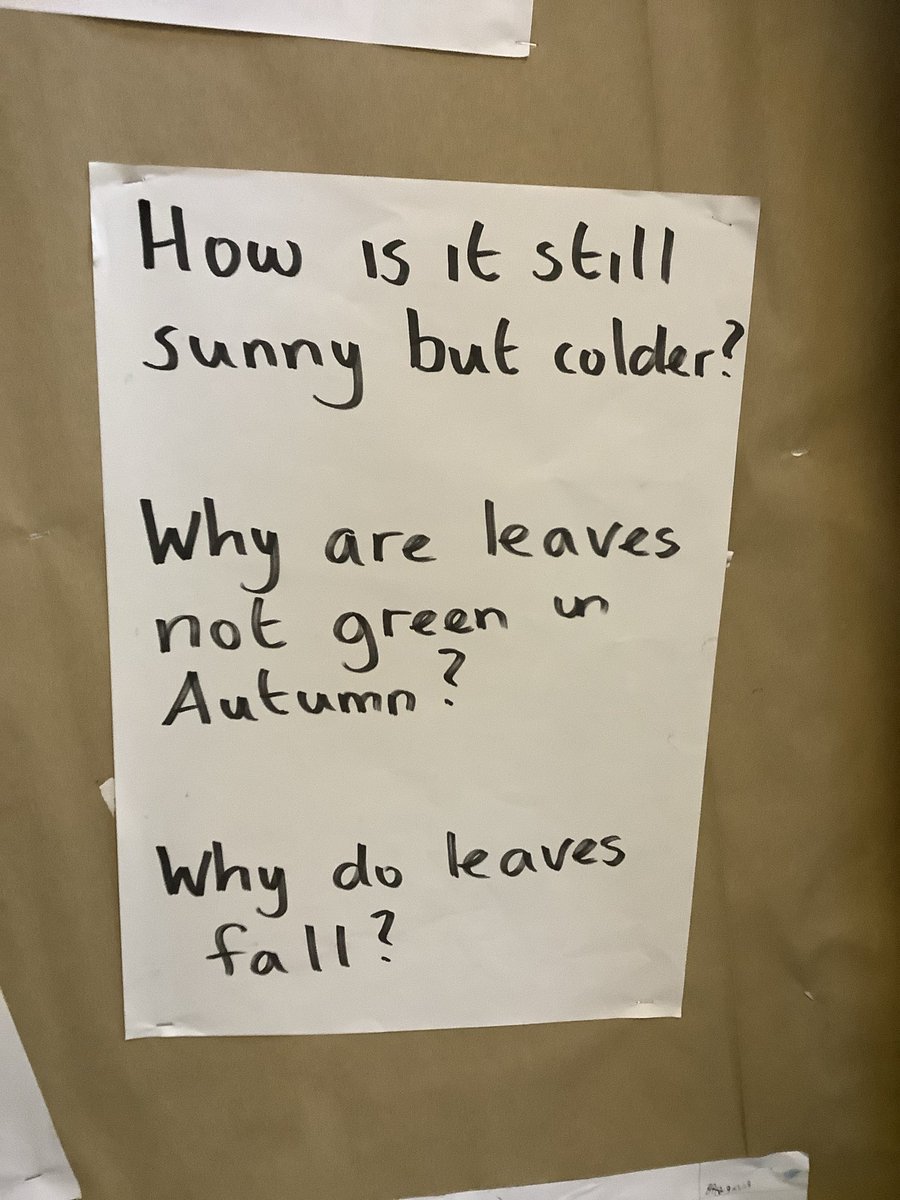 How is it still
sunny but colder?
Why are leaves
not green in
Autumn?
Why do leaves
fall?